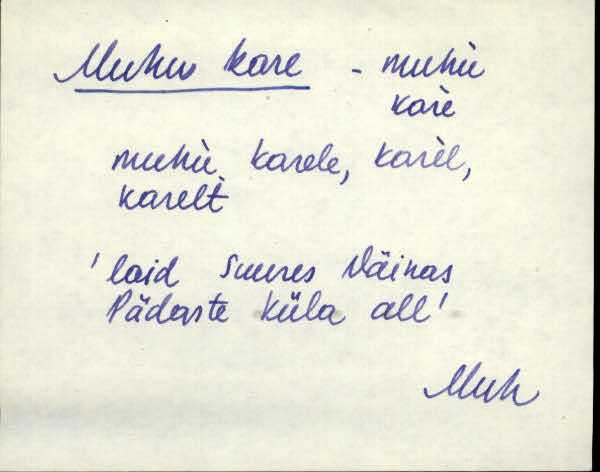 Muhu kare - muhu
kare
muhu karele, karel,
karelt
'laid Suures Väinas
Pädaste küla all'
Muh